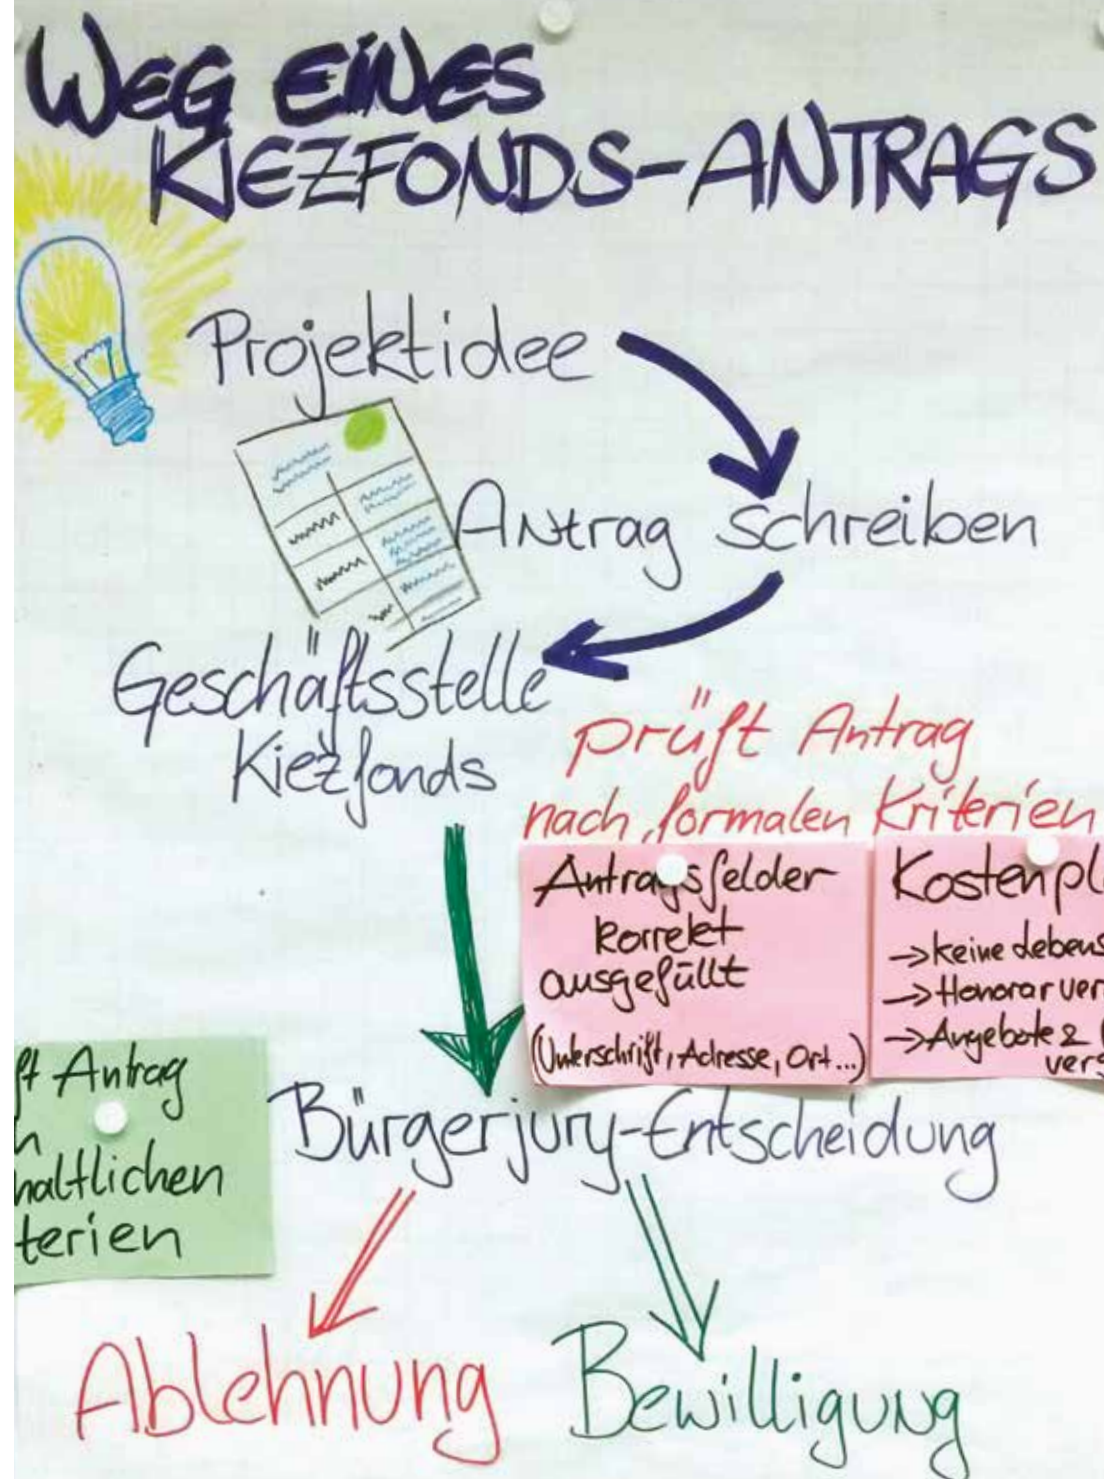 WEG EINES
KIEZFONDS-ANTRAGS
Projektidee
Antrag schreiben
Geschäftsstelle
Kiezfonds
prüft Antrag
nach formalen Kriterien
Antragsfelder
korrekt
ausgefüllt
(Unterschrift, Adresse, Ort...)
Kostenpl
→ keine Lebens
→ Honorarver
→ Angebote &
vers
ft Antrag
haltlichen
terien
Bürgerjury-Entscheidung
Ablehnung
Bewilligung